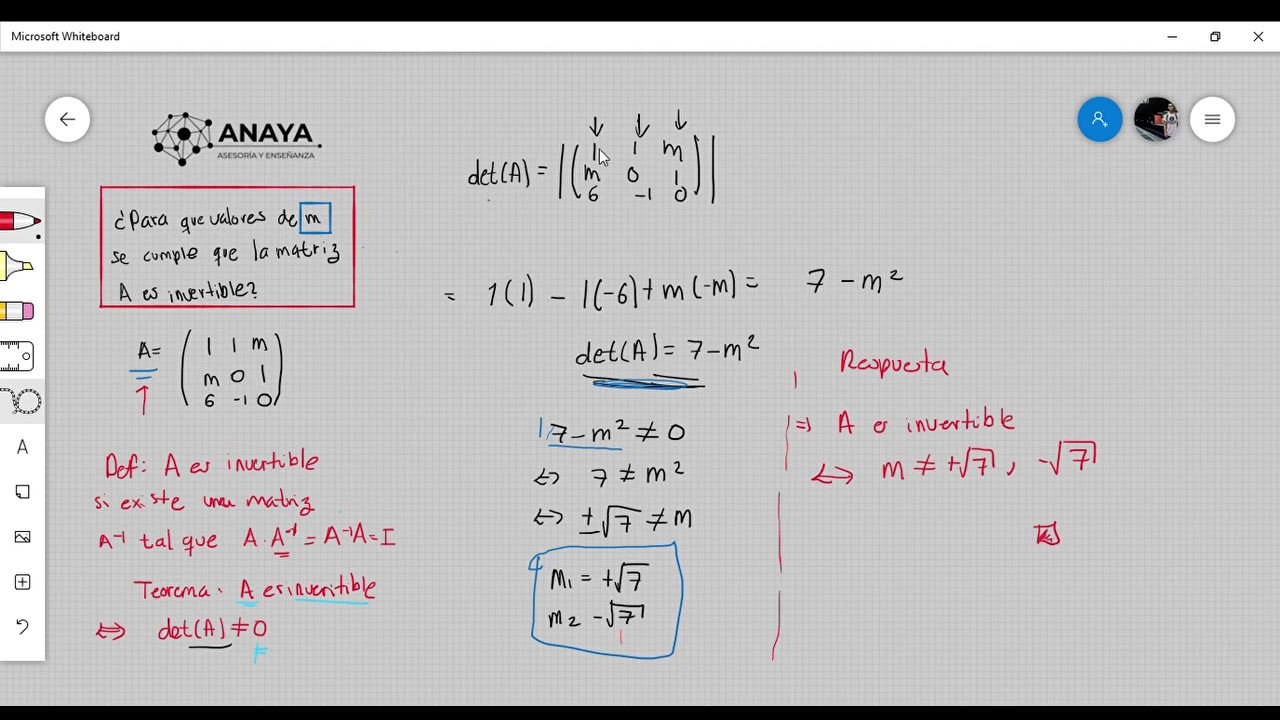 Microsoft Whiteboard
ANAYA
ASESORÍA Y ENSEÑANZA
¿Para que valores de m
se cumple que la matriz
A es invertible?
A= ( 1 1 m
m 0 1
6 -1 0 )
Def: A es invertible
si existe una matriz
A⁻¹ tal que A · A⁻¹ = A⁻¹A = I
Teorema. A es inveritible
⇔ det(A) ≠ 0
≠
det(A) = |( 1 1 m
m 0 1
6 -1 0 )|
= 1(1) - 1(-6) + m(-m) = 7 - m²
det(A) = 7 - m²
7 - m² ≠ 0
⇔ 7 ≠ m²
⇔ ±√7 ≠ m
m₁ = +√7
m₂ -√7
Respuesta
⇒ A es invertible
⇔ m ≠ +√7, -√7
A